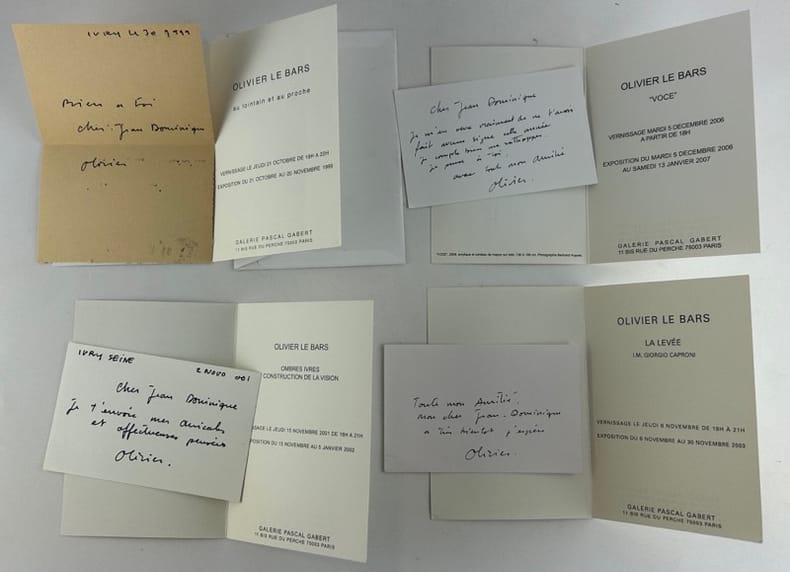 IVRY LE 30 9 1999
Bien à toi
cher Jean Dominique
Olivier
OLIVIER LE BARS
au lointain et au proche
VERNISSAGE LE JEUDI 21 OCTOBRE DE 18H A 22H
EXPOSITION DU 21 OCTOBRE AU 20 NOVEMBRE 1999
GALERIE PASCAL GABERT
11 BIS RUE DU PERCHE 75003 PARIS
Cher Jean Dominique
Je m'en veux vraiment de ne t'avoir
fait aucun signe cette année
Je compte bien me rattrapper.
Je pense à toi.
avec tout mon amitié
Olivier.
OLIVIER LE BARS
"VOCE"
VERNISSAGE MARDI 5 DECEMBRE 2006
A PARTIR DE 18H
EXPOSITION DU MARDI 5 DECEMBRE 2006
AU SAMEDI 13 JANVIER 2007
GALERIE PASCAL GABERT
11 BIS RUE DU PERCHE 75003 PARIS
IVRY SEINE
2 NOVO 001
Cher Jean Dominique
Je t'envoie mes amicales
et affectueuses pensées
Olivier.
OLIVIER LE BARS
OMBRES IVRES
CONSTRUCTION DE LA VISION
SSAGE LE JEUDI 15 NOVEMBRE 2001 DE 18H A 21H
POSITION DU 15 NOVEMBRE AU 5 JANVIER 2002
GALERIE PASCAL GABERT
11 BIS RUE DU PERCHE 75003 PARIS
Toute mon Amitié,
mon cher Jean-Dominique
à très bientôt j'espère
Olivier.
OLIVIER LE BARS
LA LEVÉE
I.M. GIORGIO CAPRONI
VERNISSAGE LE JEUDI 6 NOVEMBRE DE 18H A 21H
EXPOSITION DU 6 NOVEMBRE AU 30 NOVEMBRE 2003
GALERIE PASCAL GABERT
11 BIS RUE DU PERCHE 75003 PARIS